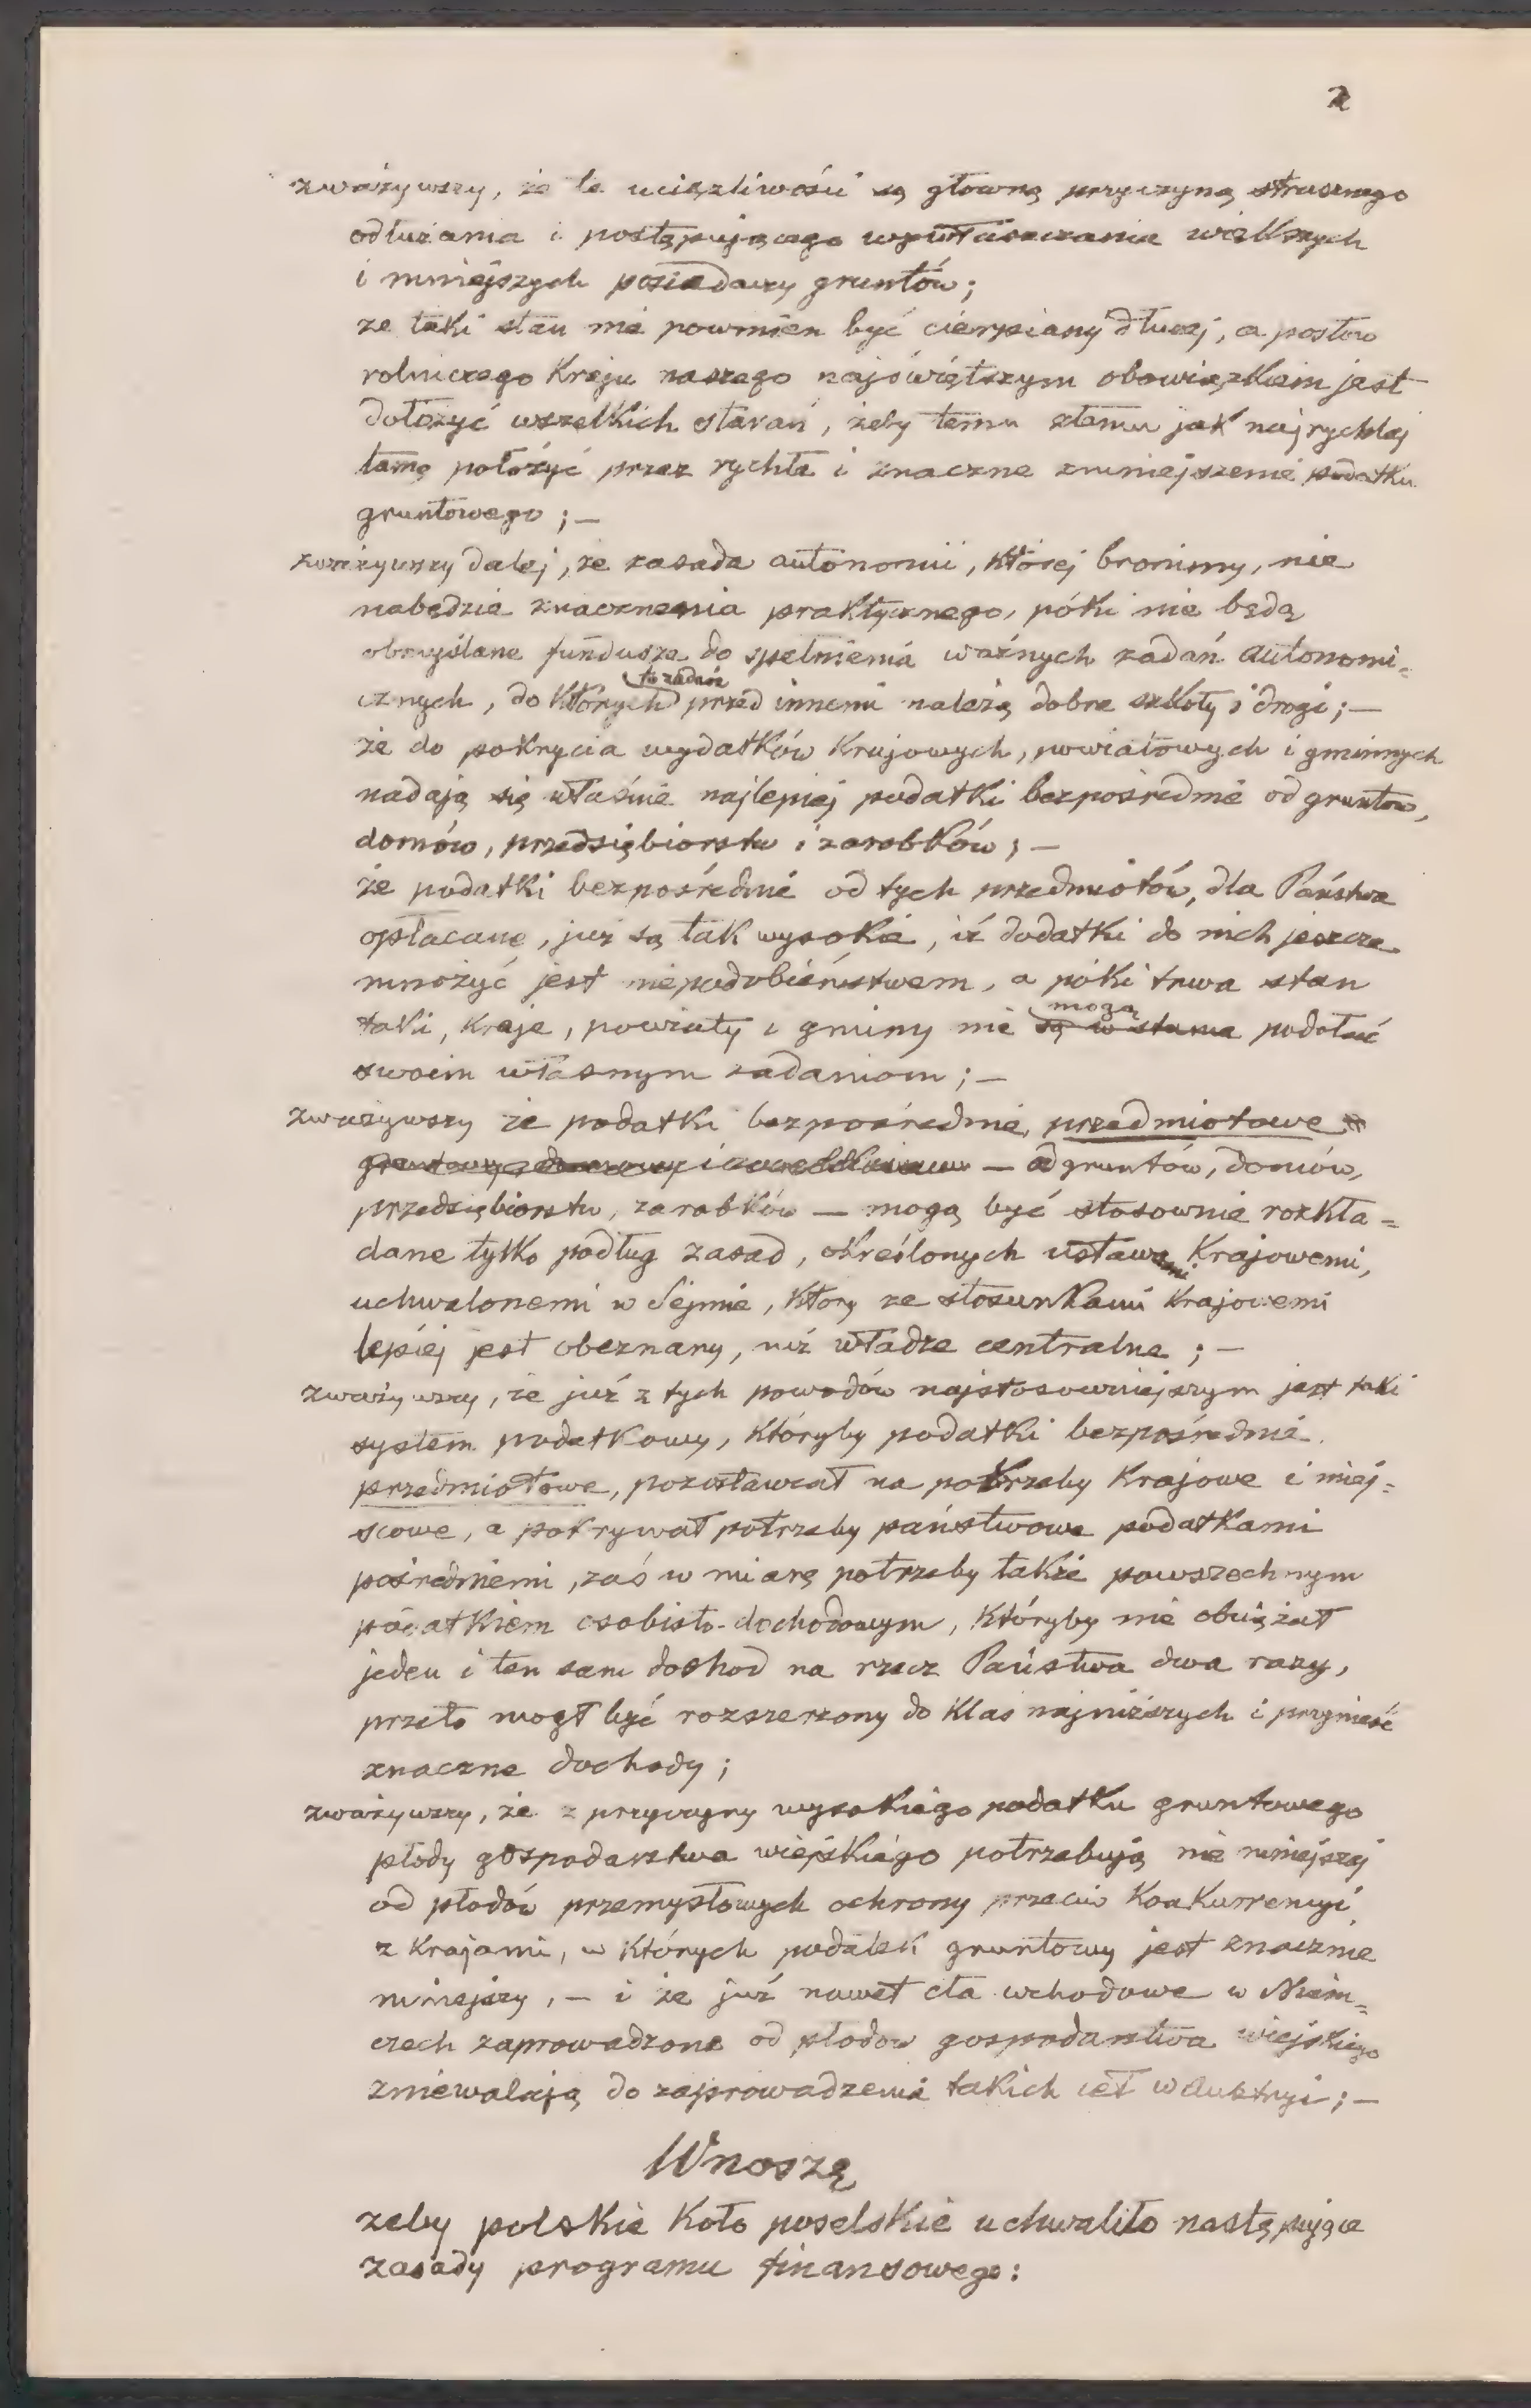 2
zważywszy, że te uciążliwości są główną przyczyną strasznego
odłużania i postępującego wywłaszczania większych
i mniejszych posiadaczy gruntów;
że taki stan nie powinien być cierpiany dłużej, a posłów
rolniczego Kraju naszego najświętszym obowiązkiem jest
dołożyć wszelkich starań, żeby temu złemu jak najrychlej
tamę położyć przez rychłe i znaczne zmniejszenie podatku
gruntowego; —
zważywszy dalej, że zasada autonomii, której bronimy, nie
nabędzie znaczenia praktycznego, póki nie będą
obmyślane fundusze do spełnienia ważnych zadań autonomi=
cznych, do których przed innemi należą dobre szkoły i drogi; —
że do pokrycia wydatków Krajowych, powiatowych i gminnych
nadają się właśnie najlepiej podatki bezpośrednie od gruntów,
domów, przedsiębiorstw i zarobków; —
że podatki bezpośrednie od tych przedmiotów, dla Państwa
opłacane, już są tak wysokie, iż dodatki do nich jeszcze
mnożyć jest niepodobieństwem, a póki trwa stan
taki, kraje, powiaty i gminy nie są w stanie mogą podołać
swoim własnym zadaniom; —
zważywszy że podatki bezpośrednie, przedmiotowe
— od gruntów, domów,
przedsiębiorstw, zarobków — mogą być stosownie rozkła=
dane tylko podług zasad, określonych ustawami Krajowemi,
uchwalonemi w Sejmie, który ze stosunkami Krajowemi
lepiej jest obeznany, niż władze centralne; —
zważywszy, że już z tych powodów najstosowniejszym jest taki
system podatkowy, któryby podatki bezpośrednie
przedmiotowe, pozostawiał na potrzeby Krajowe i miej=
scowe, a pokrywał potrzeby państwowe podatkami
pośredniemi, zaś w miarę potrzeby także powszechnym
podatkiem osobisto-dochodowym, któryby nie obciążał
jeden i ten sam dochod na rzecz Państwa dwa razy,
przeto mogł być rozszerzony do klas najniższych i przynieść
znaczne dochody;
zważywszy, że z przyczyny wysokiego podatku gruntowego
płody gospodarstwa wiejskiego potrzebują nie mniejszej
od płodów przemysłowych ochrony przeciw Konkurrencyi
z Krajami, w których podatek gruntowy jest znacznie
mniejszy, — i że już nawet cła wchodowe w Niem=
czech zaprowadzone od płodow gospodarstwa wiejskiego
zniewalają do zaprowadzenia takich ceł w Austryi; —
Wnoszę
żeby polskie Koło poselskie uchwaliło następujące
zasady programu finansowego: